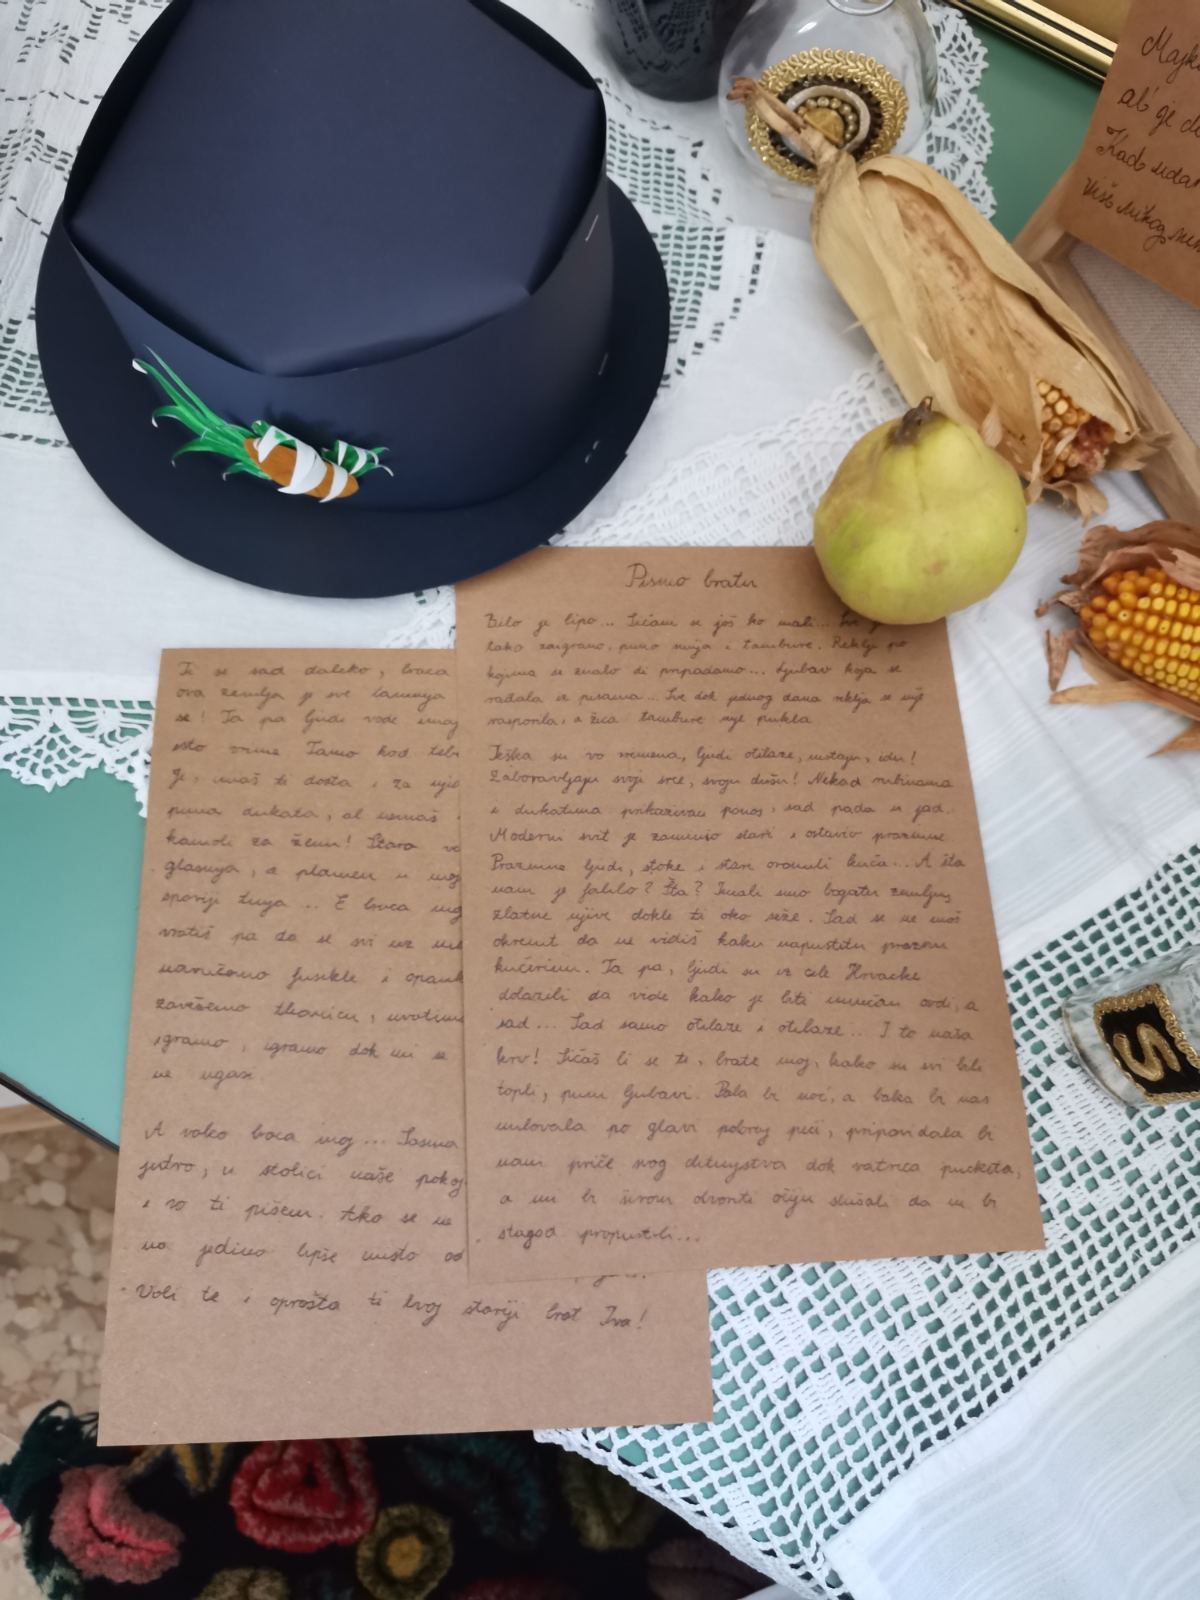 Pismo bratu
Bilo je lipo... Sićam se još ko mali... Sve je
tako zaigrano, puno smija i tambure. Reklje po
kojima se znalo di pripadamo... Ljubav koja se
rađala iz pisama... Sve dok jednog dana reklja se nije
rasporila, a žica tambure nije pukla.
Teška su vo vremena, ljudi odlaze, ustaju, idu!
Zaboravljaju svoje srce, svoju dušu! Nekad rubinama
i dukatima prikazivau ponos, sad pada u jad.
Moderni svit je zaminio stari i ostavio praznine.
Praznine ljudi, stoke i stari oronuli kuća... A šta
nam je falilo? Šta? Imali smo bogatu zemlju,
zlatne njive dokle ti oko seže. Sad se ne moš
okrenit da ne vidiš kaku napuštenu praznu
kućerinu. Ta pa, ljudi su iz cile Hrvacke
dolazili da vide kako je biti imućan ovdi, a
sad... Sad samo odlaze i odlaze... I to naša
krv! Sićaš li se ti, brate moj, kako su svi bili
topli, puni ljubavi. Pala bi noć, a baka bi nas
milovala po glavi pokraj peći, pripovidala bi
nam priče svog ditinjstva dok vatrica pucketa,
a mi bi širom otvoriti očiju slušali da ne bi
štagod propustili...
Ti si sad daleko, braca
ova zemlja je sve tamnija
se! Ta pa ljudi vode
isto vrime. Tamo kod tebe
je, imaš ti dosta i za
puna dukata, al nemaš
kamoli za ženu! Stara
glasnija, a plamen u moj
sporije tinja... E braca moj
vratiš pa da se svi uz
navučemo fusekle i opank
zavežemo tkanicu, uvatimo
igramo, igramo dok mi se
ne ugasi.
A volio braca moj... Sasma
jutro, u stolici naše pokoj
i vo ti pišem. Ako se ne
na jedino lipše misto od
Voli te i oprošta ti tvoj stariji brat Iva!
Majk
al' je
Kad udar
više nikog
S